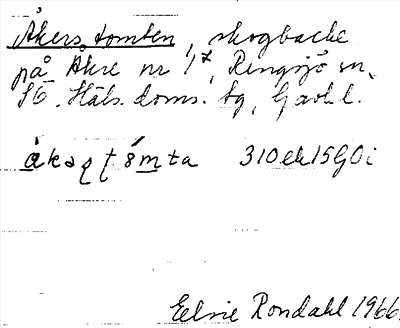 Åkers tomten, skogbacke
på Åkre nr 1⁷, Rengsjö sn,
S Ö. Häls. doms. sg, Gävl. l.
åkaʂ ʈómta 310 ek 15 G0i
Elvie Rondahl 1966.